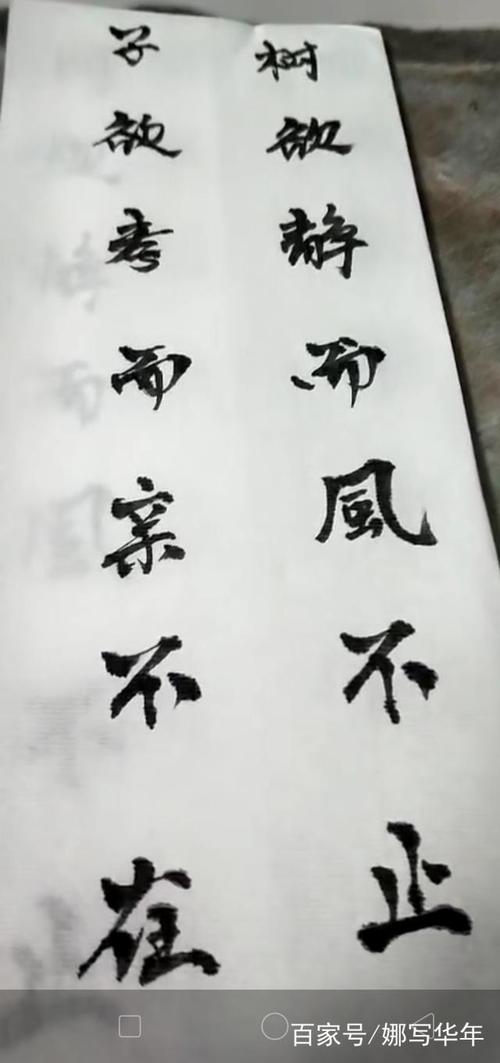 树欲静而風不止
子欲孝而亲不在
百家号/娜写华年